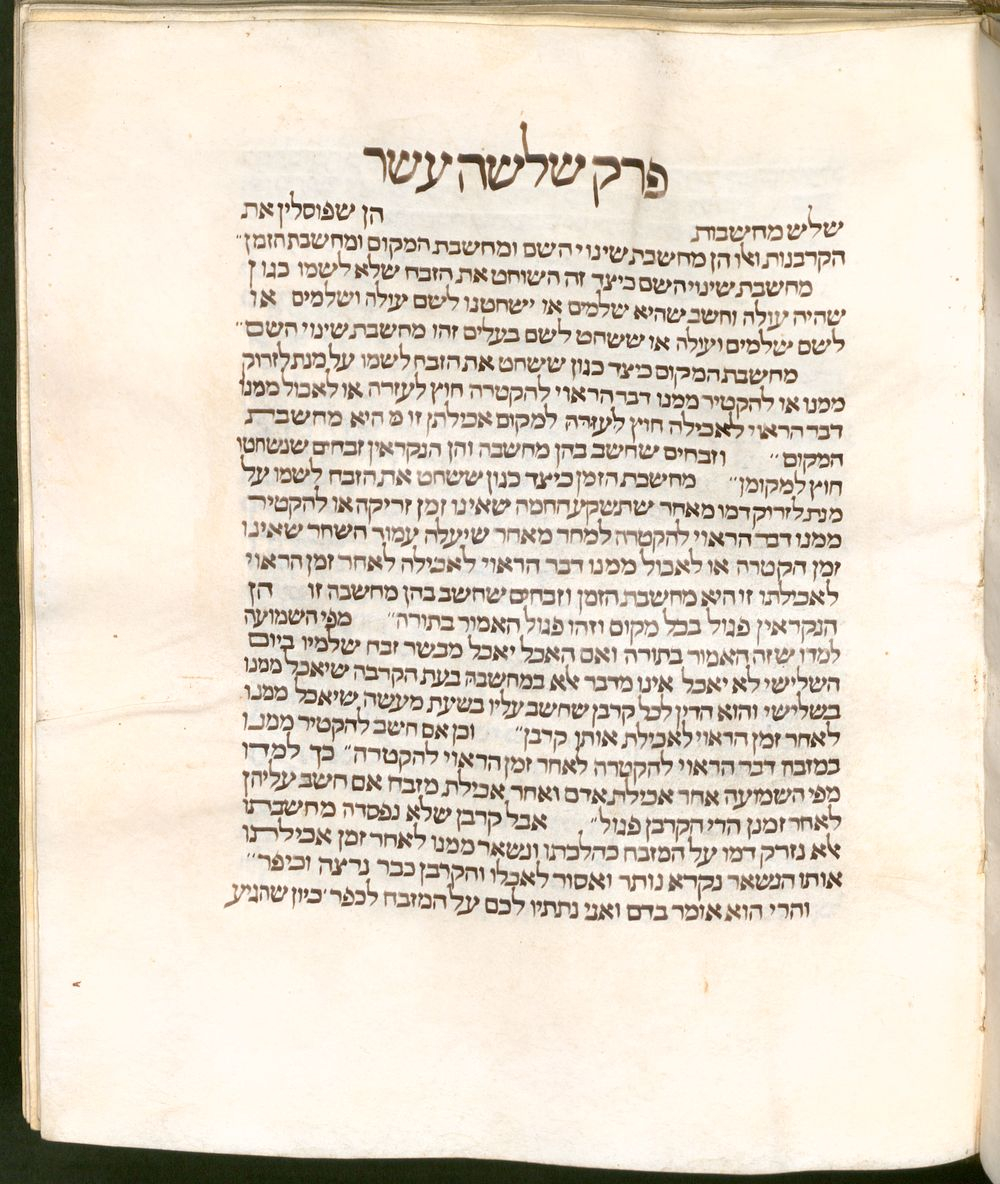 פרק שלשה עשר
שלש מחשבות הן שפוסלין את
הקרבנות ואלו הן מחשבת שינוי השם ומחשבת המקום ומחשבת הזמן״
מחשבת שינוי השם כיצד זה השוחט את הזבח שלא לשמו כגון
שהיה עולה וחשב שהיא שלמים או ישחטנו לשם עולה ושלמים או
לשם שלמים ועולה או ששחט לשם בעלים זהו מחשבת שינוי השם״
מחשבת המקום כיצד כגון ששחט את הזבח לשמו על מנת לזרוק
ממנו או להקטיר ממנו דבר הראוי להקטרה חוץ לעזרה או לאכול ממנו
דבר הראוי לאכילה חוץ לעזרה למקום אכילתן זו היא מחשבת
המקום״ וזבחים שחשב בהן מחשבה והן הנקראין זבחים שנשחטו
חוץ למקומן״ מחשבת הזמן כיצד כגון ששחט את הזבח לשמו על
מנת לזרוק דמו מאחר שתשקע החמה שאינו זמן זריקה או להקטיר
ממנו דבר הראוי להקטרה למחר מאחר שיעלה עמוד השחר שאינו
זמן הקטרה או לאכול ממנו דבר הראוי לאכילה לאחר זמן הראוי
לאכילתו זו היא מחשבת הזמן וזבחים שחשב בהן מחשבה זו הן
הנקראין פגול בכל מקום וזהו פגול האמור בתורה״ מפי השמועה
למדו שזה האמור בתורה ואם האכל יאכל מבשר זבח שלמיו ביום
השלישי לא יאכל אינו מדבר אלא במחשבה בעת הקרבה שיאכל ממנו
בשלישי והוא הדין לכל קרבן שחשב עליו בשעת מעשה שיאכל ממנו
לאחר זמן הראוי לאכילת אותן קרבן״ וכן אם חשב להקטיר ממנו
במזבח דבר הראוי להקטרה לאחר זמן הראוי להקטרה״ כך למדו
מפי השמועה אחר אכילת אדם ואחר אכילת מזבח אם חשב עליהן
לאחר זמנן הרי הקרבן פגול״ אבל קרבן שלא נפסדה מחשבתו
אלא נזרק דמו על המזבח כהלכתו ונשאר ממנו לאחר זמן אכילתו
אותו הנשאר נקרא נותר ואסור לאכלו והקרבן כבר נרצה וכיפר״
והרי הוא אומר בדם ואני נתתיו לכם על המזבח לכפר כיון שהגיע